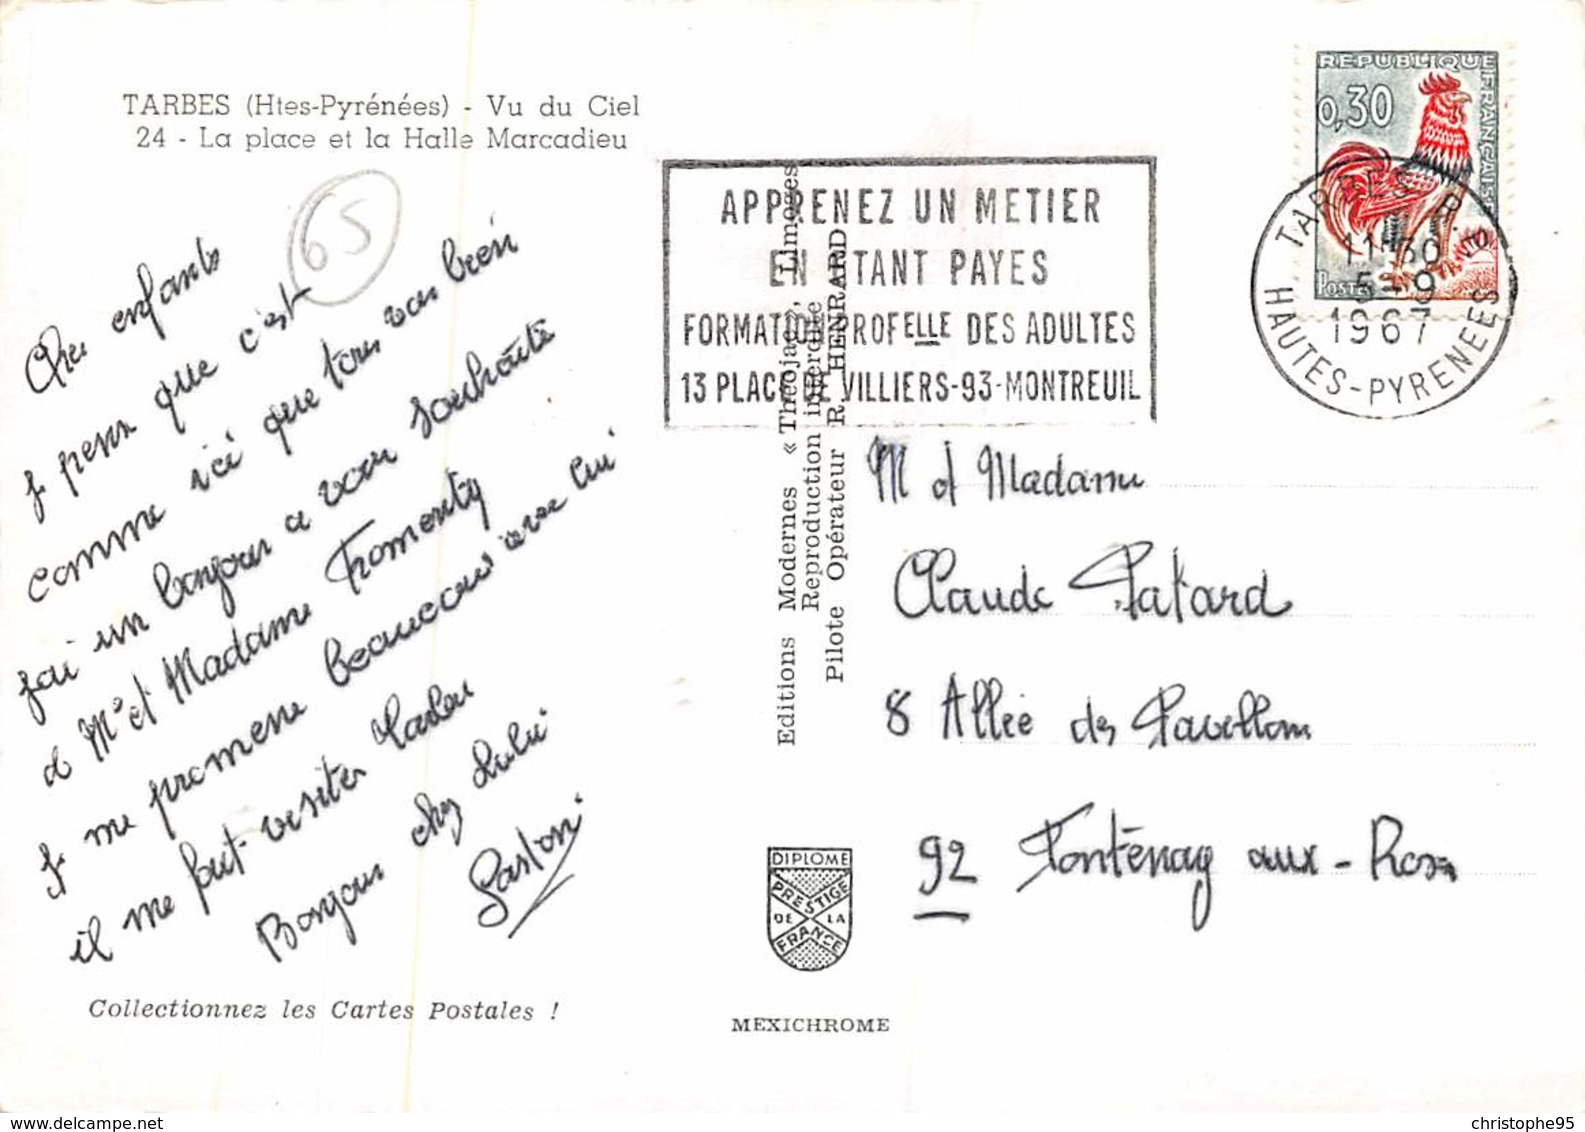 TARBES (Htes-Pyrénées) - Vu du Ciel
24 - La place et la Halle Marcadieu
65
enfants
Je pense que c'est
comme ici que tous vas bien
j'ai un bonjour a vous souhaite
de Mr et Madame Fromenty
Je me promene beaucoup avec lui
il me fait visiter
Bonjour chez Lulu
Gaston
Collectionnez les Cartes Postales !
Editions Modernes « Théojac », Limoges
Reproduction interdite
Pilote Opérateur R. HENRARD
DIPLOME
PRESTIGE
DE LA
FRANCE
MEXICHROME
APPRENEZ UN METIER
EN ETANT PAYES
FORMATION PROFELLE DES ADULTES
13 PLACE DE VILLIERS-93-MONTREUIL
REPUBLIQUE FRANÇAISE
0,30
POSTES
TARBES R.P.
11H30
5-9
1967
HAUTES-PYRENEES
M et Madame
Claude Patard
8 Allée des Pavillons
92 Fontenay aux-Roses
christophe95